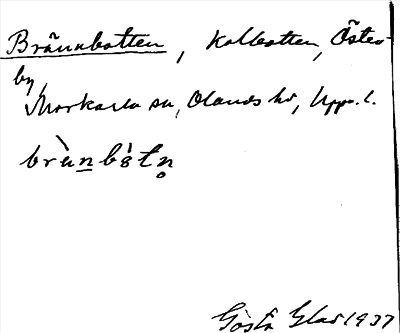 Brännbotten, Kolbotten, Öster-
by,
Morkarla sn, Olands hd, Upps. l.
brùnbòtn̥
Gösta Glas 1937